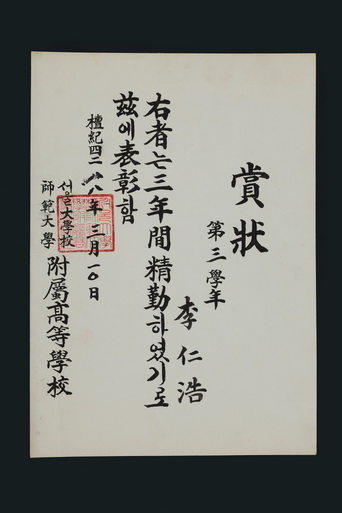 賞狀
第三學年
李仁浩
右者는三年間精勤하였기로
玆에表彰함
檀紀四二八八年三月一○日
서울大學校
師範大學
附屬高等學校